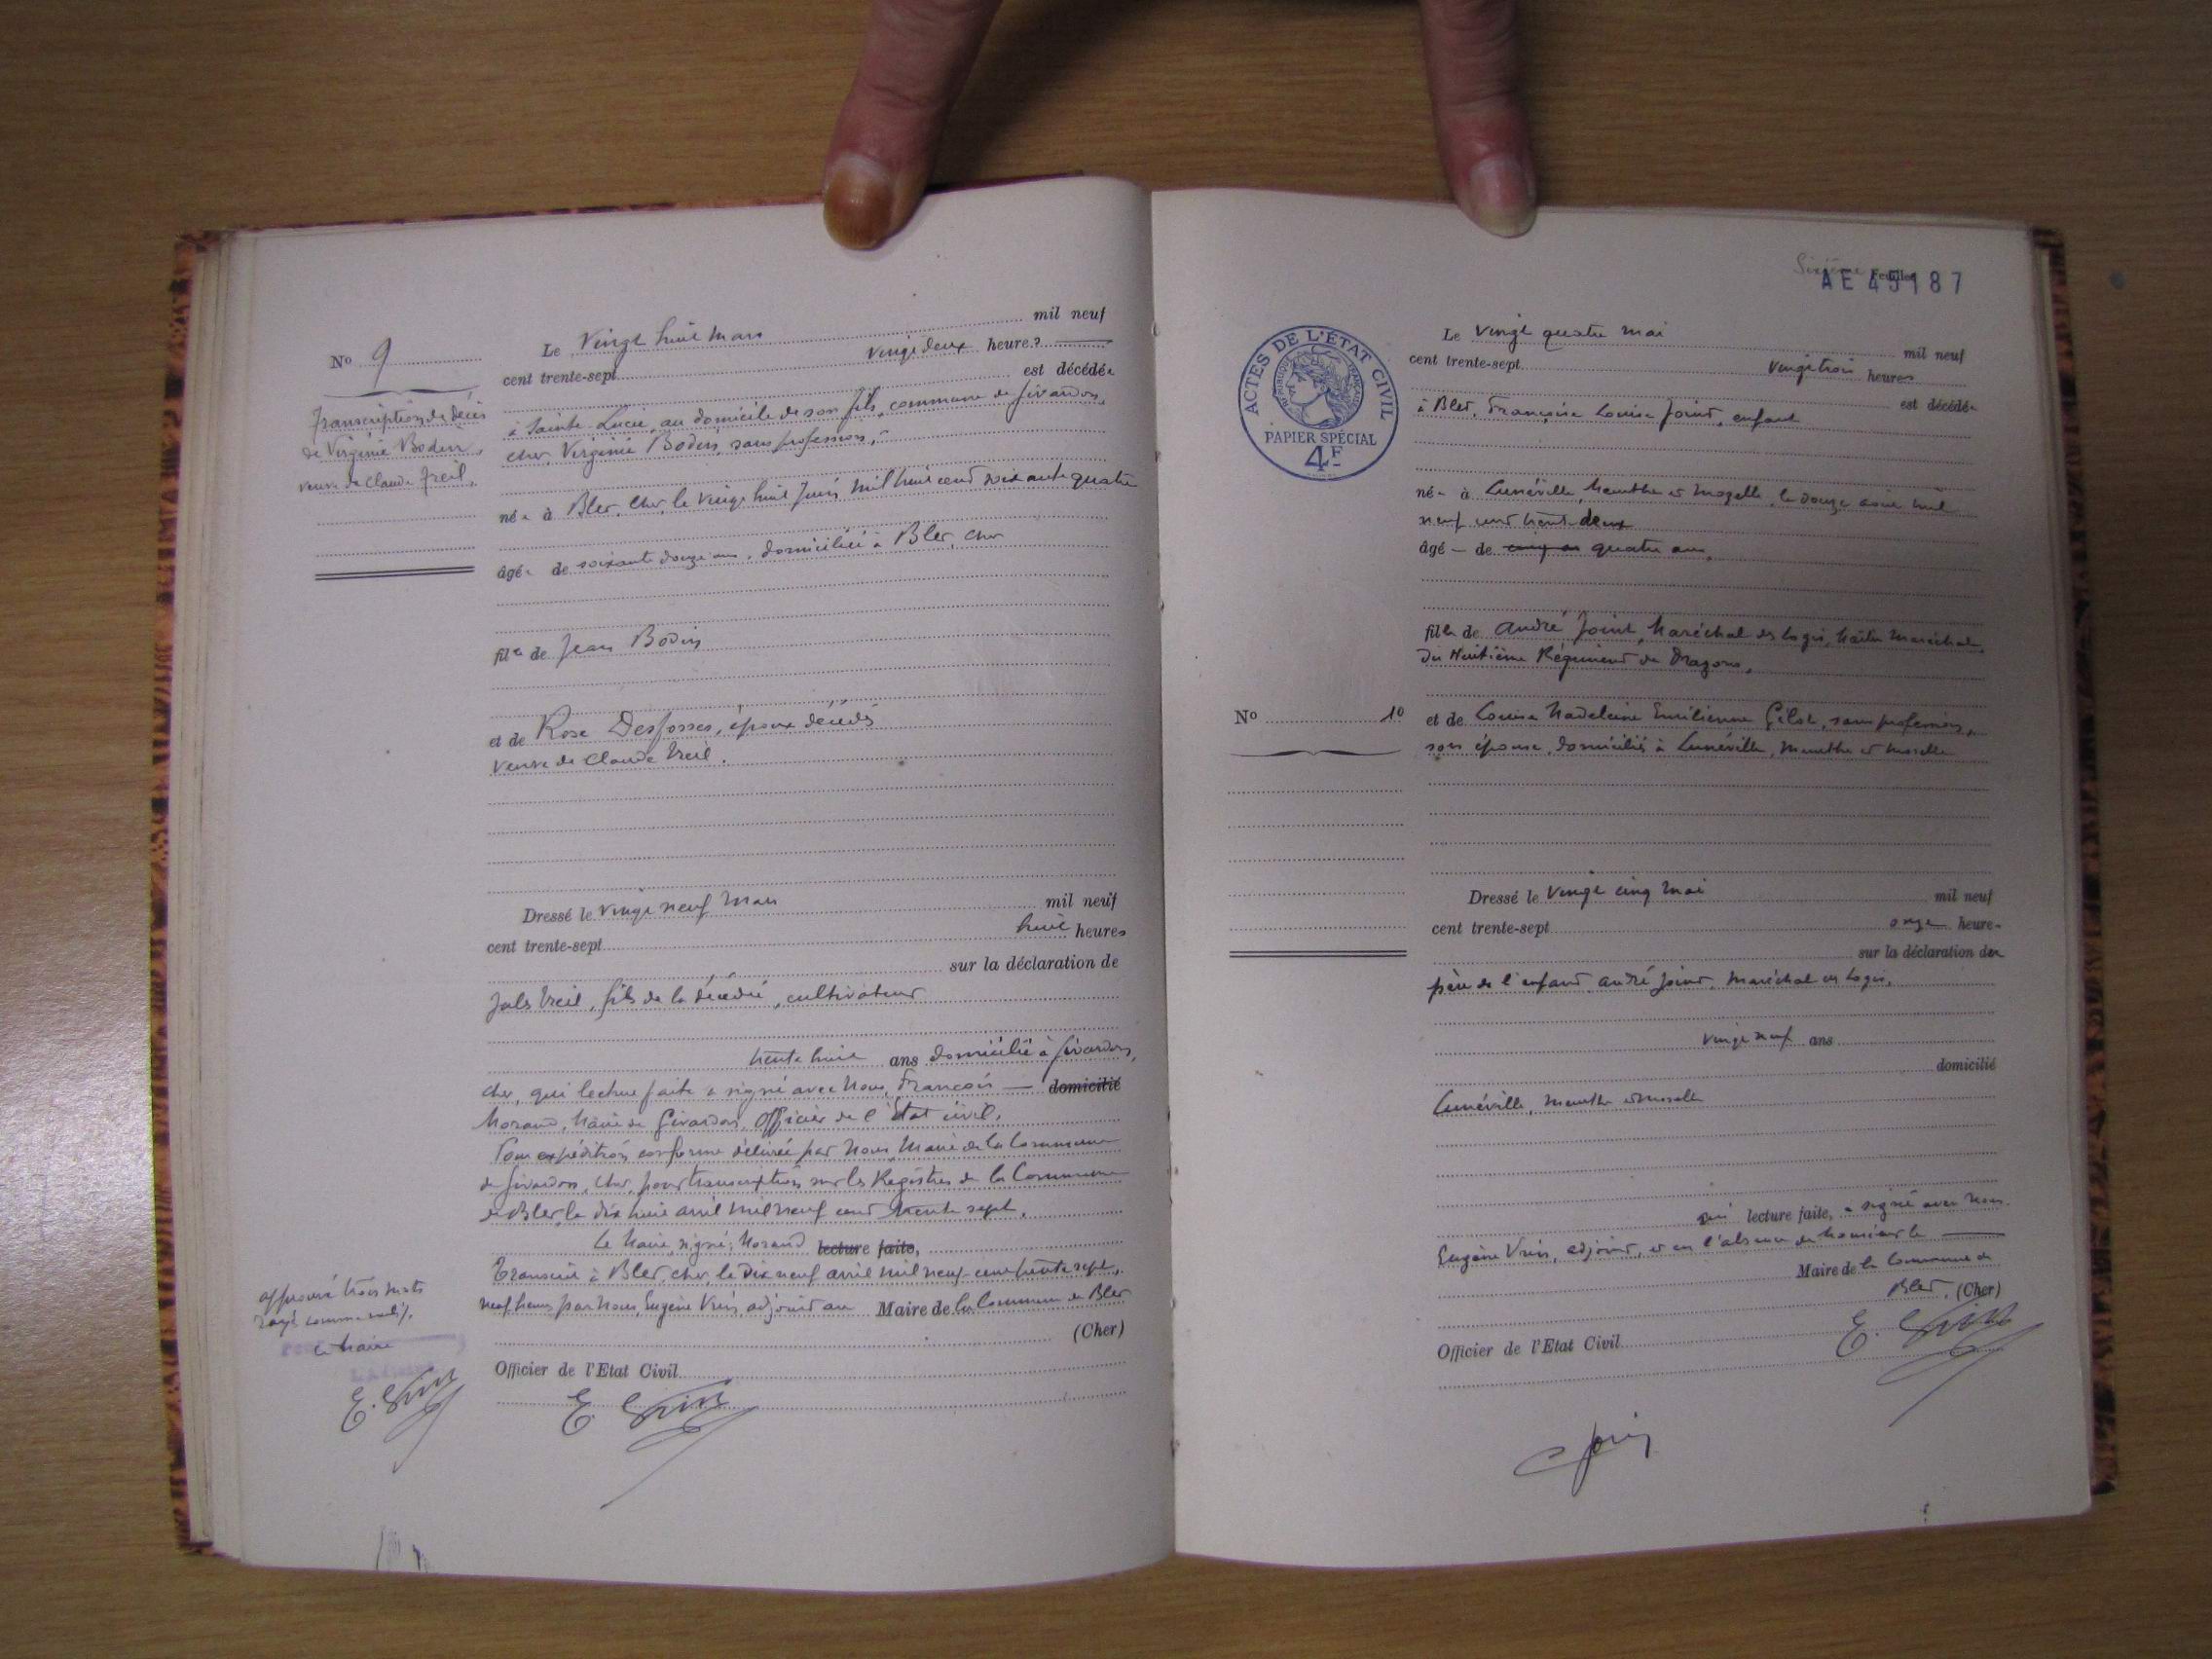 No 9
Transcription de décès
de Virginie Bodin,
veuve de Claude Treil.
Le vingt huit mars mil neuf
cent trente-sept vingt deux heures
est décédée
à Sainte Lucie, au domicile de son fils, commune de Givardon,
Cher, Virginie Bodin, sans profession,
née à Blet, Cher, le vingt huit Juin mil huit cent soixante quatre
âgée de soixante douze ans, domiciliée à Blet, Cher
fille de Jean Bodin
et de Rose Desfosses, époux décédés
veuve de Claude Treil.
Dressé le vingt neuf mars mil neuf
cent trente-sept huit heures
sur la déclaration de
Jules Treil, fils de la décédée, cultivateur
trente huit ans domicilié à Givardon,
Cher, qui lecture faite a signé avec Nous, François — domicilié
Morand, Maire de Givardon, Officier de l'Etat civil.
Pour expédition conforme délivrée par Nous, Maire de la Commune
de Givardon, Cher, pour transcription sur les Registres de la Commune
de Blet, le dix huit avril mil neuf cent trente sept.
Le Maire, signé: Morand lecture faite,
Transcrit à Blet, Cher, le dix neuf avril mil neuf cent trente sept,
neuf heures, par Nous, Eugène adjoint au Maire de la Commune de Blet
(Cher)
Officier de l'Etat Civil
approuvé trois mots
rayés comme nuls,
Le Maire
Sixième Feuillet
AE 45187
ACTES DE L'ÉTAT CIVIL
RÉPUBLIQUE FRANÇAISE
PAPIER SPÉCIAL
4F
Le vingt quatre mai mil neuf
cent trente-sept vingt trois heures
est décédée
à Blet, Françoise Louise Joint, enfant
née à Lunéville, Meurthe et Mozelle, le douze août mil
neuf cent trente deux
âgé — de cinq ans quatre ans,
fille de André Joint, Maréchal des Logis, Maître Maréchal
du Huitième Régiment de Dragons,
No 10
et de Louise Madeleine Emilienne Gilot, sans profession,
son épouse, domiciliés à Lunéville, Meurthe et Moselle
Dressé le vingt cinq mai mil neuf
cent trente-sept onze heure
sur la déclaration du
père de l'enfant André Joint, Maréchal des Logis,
vingt neuf ans
domicilié
Lunéville, Meurthe et Moselle
qui lecture faite, a signé avec Nous
Eugène adjoint, et en l'absence de Monsieur le
Maire de la Commune de
Blet, (Cher)
Officier de l'Etat Civil
Joint